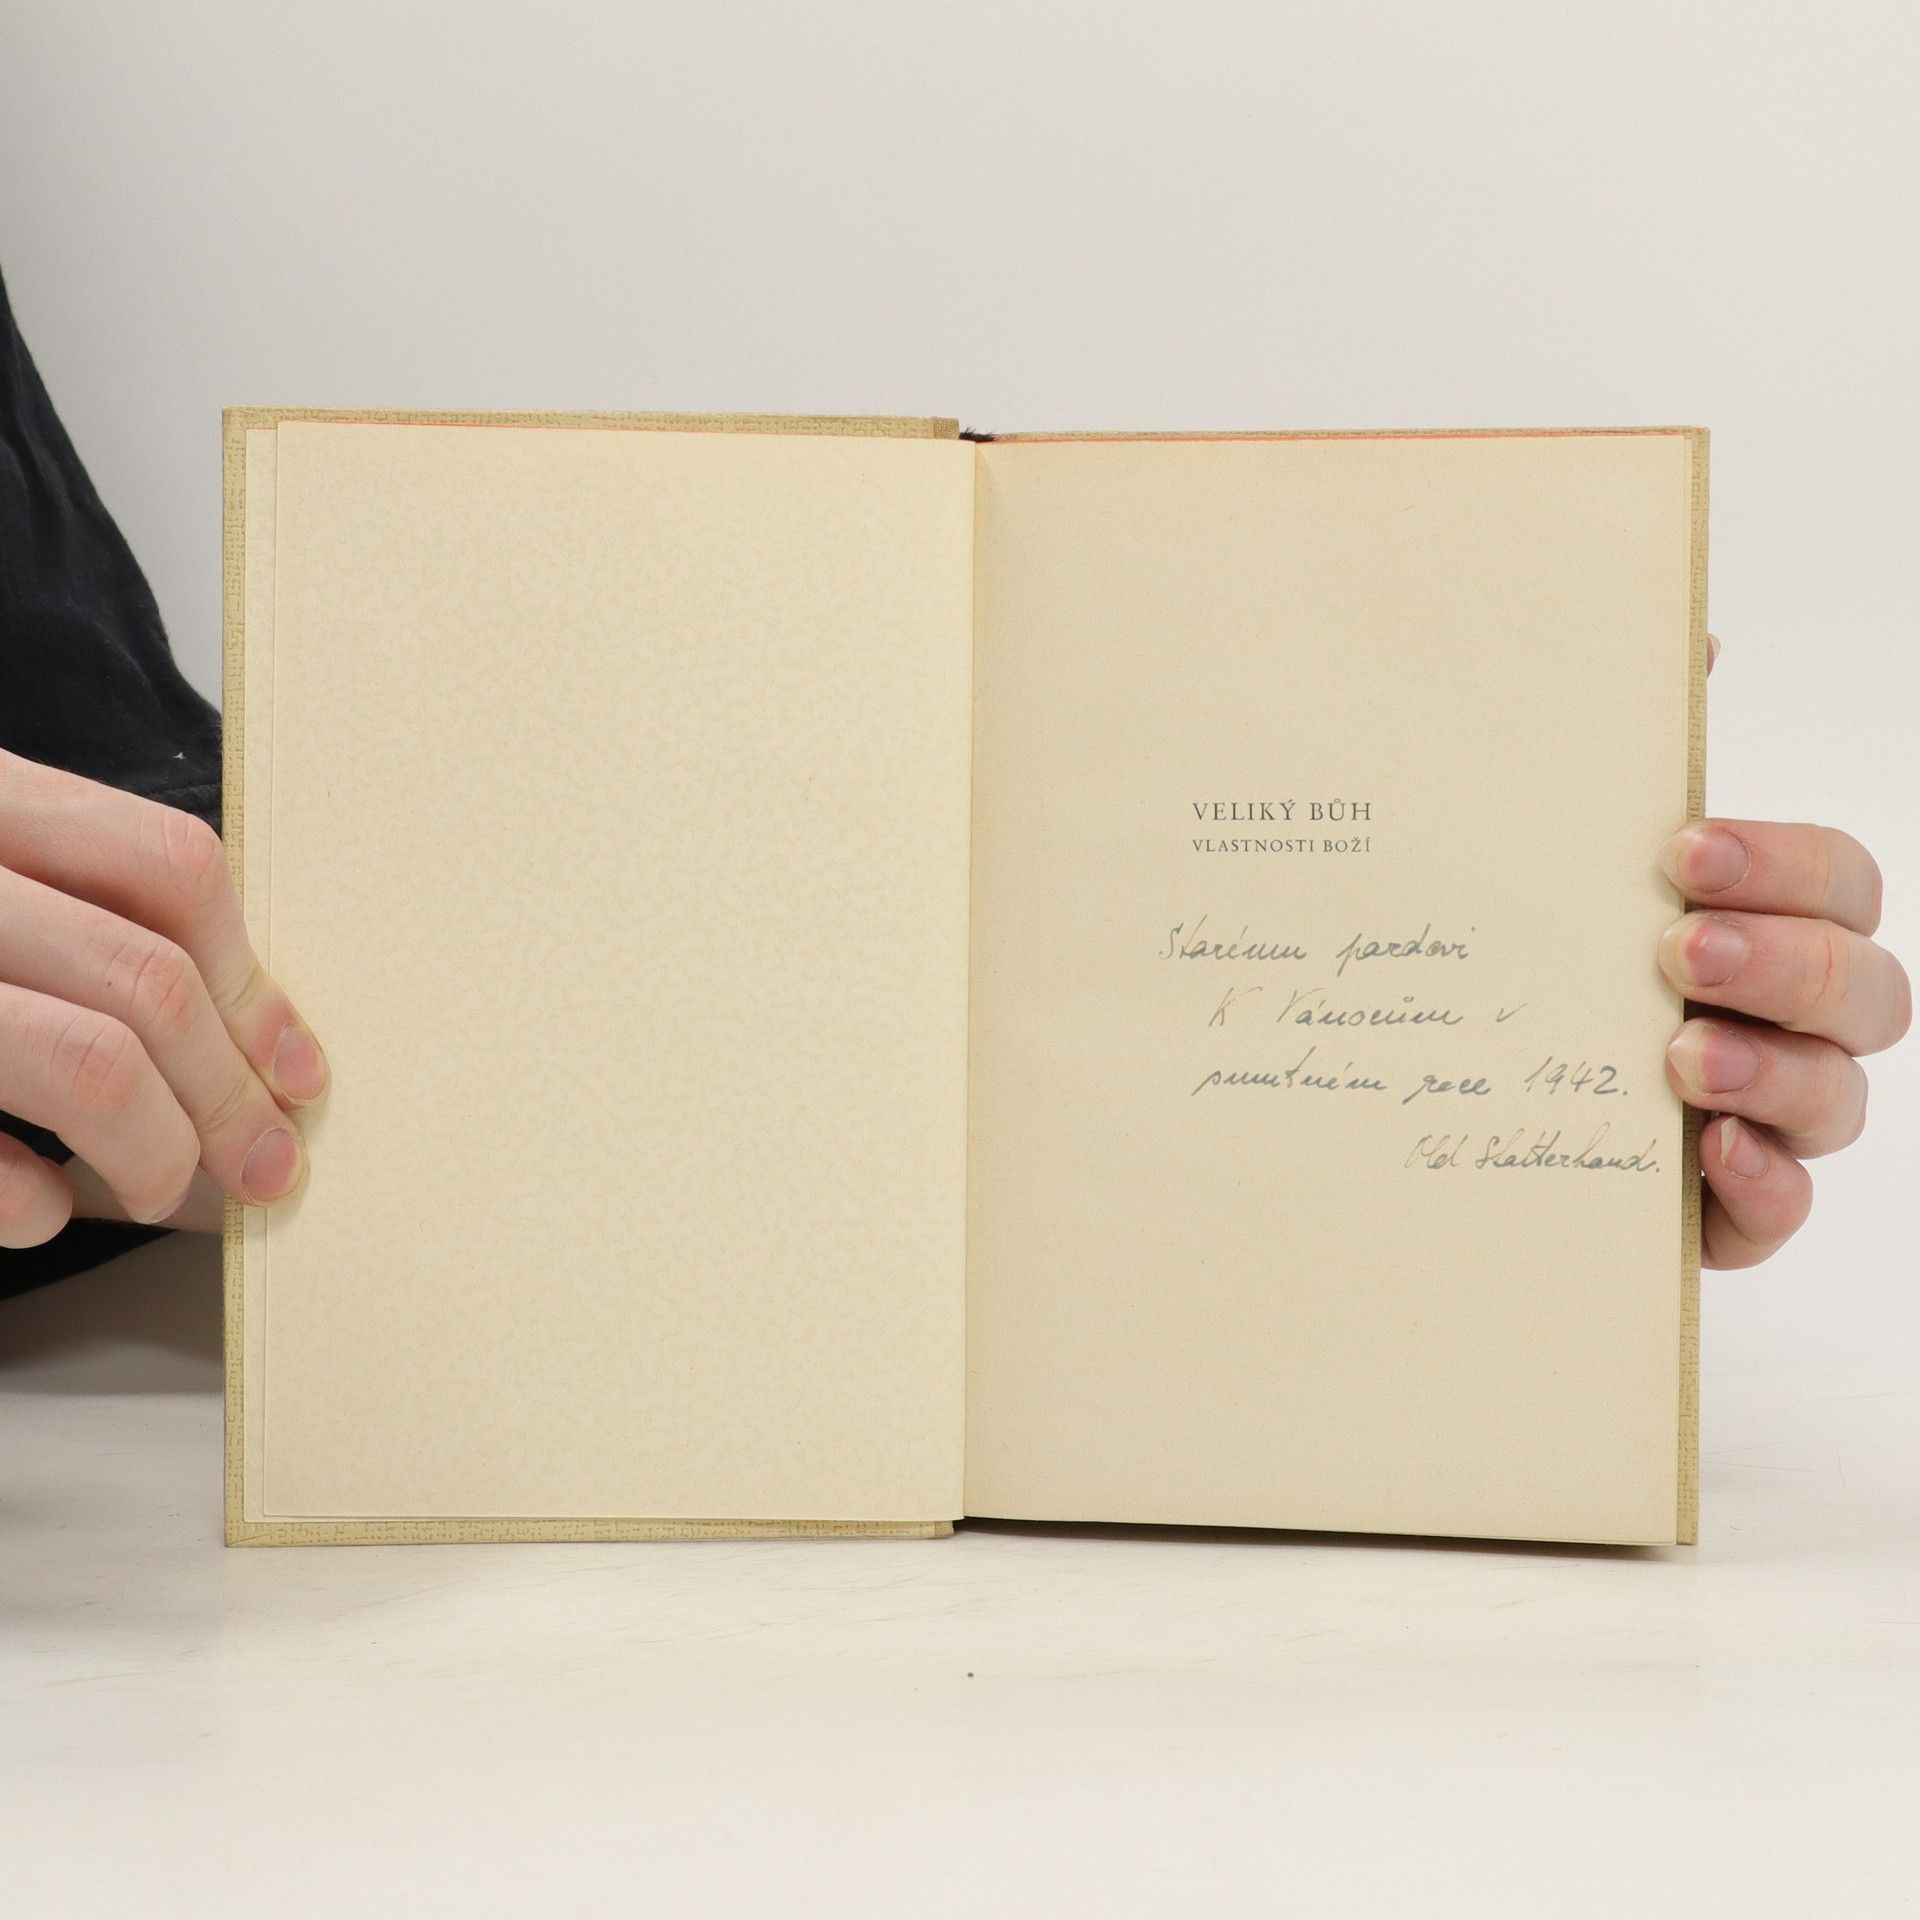 VELIKÝ BŮH
VLASTNOSTI BOŽÍ
Starému pardovi
K Vánocům v
smutném roce 1942.
Old Shatterhand.